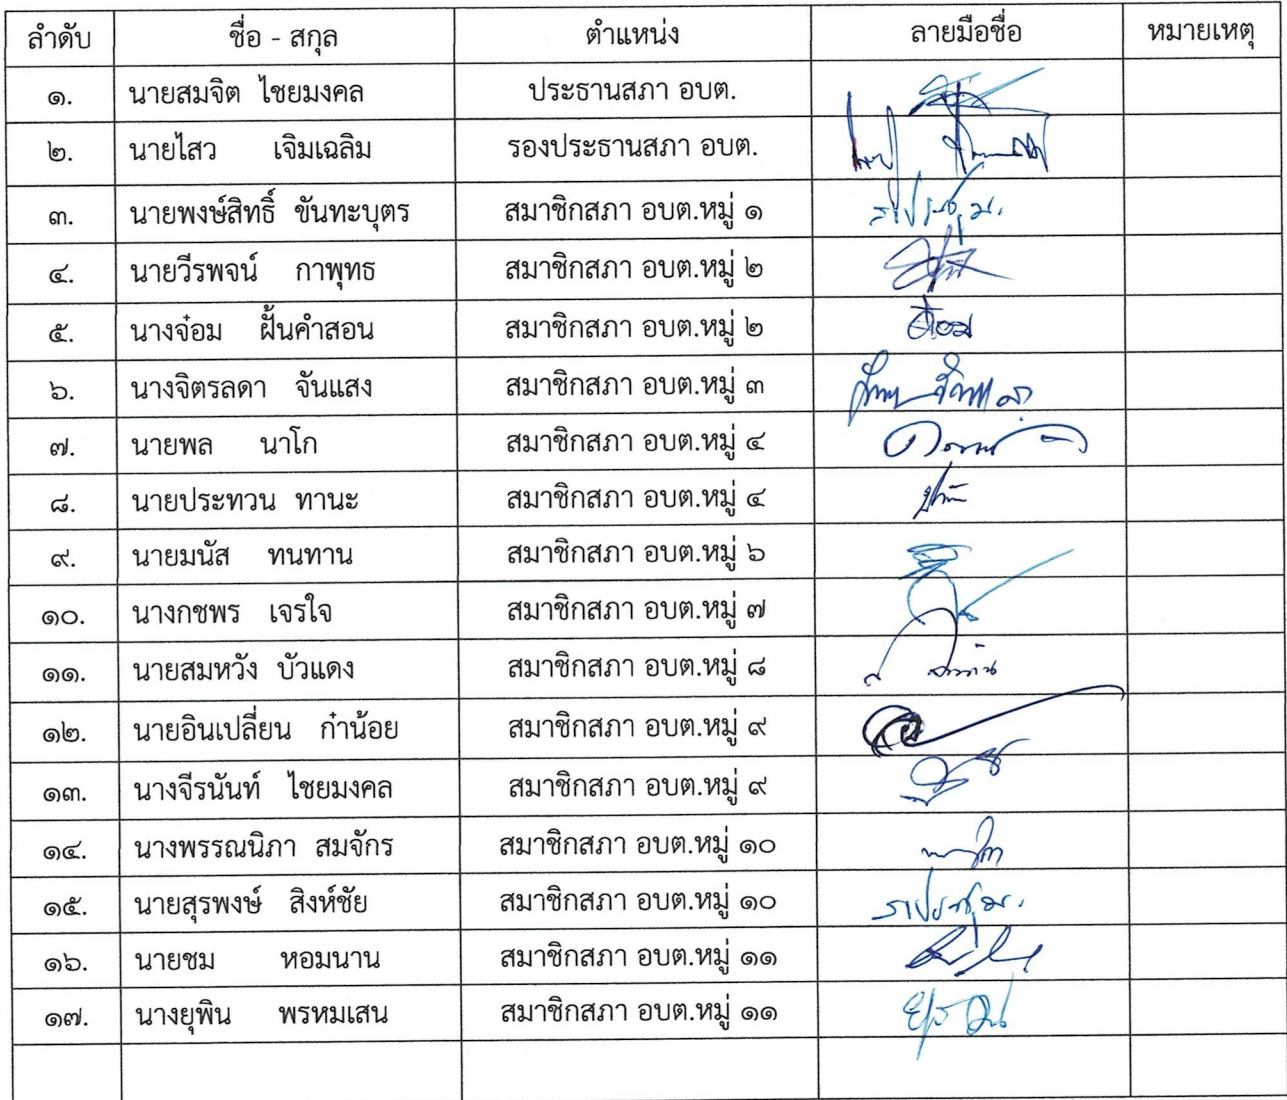 ลำดับ ชื่อ - สกุล ตำแหน่ง ลายมือชื่อ หมายเหตุ
๑. นายสมจิต ไชยมงคล ประธานสภา อบต.
๒. นายไสว เจิมเฉลิม รองประธานสภา อบต.
๓. นายพงษ์สิทธิ์ ขันทะบุตร สมาชิกสภา อบต.หมู่ ๑ ลาประชุม.
๔. นายวีรพจน์ กาพุทธ สมาชิกสภา อบต.หมู่ ๒
๕. นางจ๋อม ฝั้นคำสอน สมาชิกสภา อบต.หมู่ ๒
๖. นางจิตรลดา จันแสง สมาชิกสภา อบต.หมู่ ๓
๗. นายพล นาโก สมาชิกสภา อบต.หมู่ ๔
๘. นายประทวน ทานะ สมาชิกสภา อบต.หมู่ ๔
๙. นายมนัส ทนทาน สมาชิกสภา อบต.หมู่ ๖
๑๐. นางกชพร เจรใจ สมาชิกสภา อบต.หมู่ ๗
๑๑. นายสมหวัง บัวแดง สมาชิกสภา อบต.หมู่ ๘
๑๒. นายอินเปลี่ยน ก๋าน้อย สมาชิกสภา อบต.หมู่ ๙
๑๓. นางจีรนันท์ ไชยมงคล สมาชิกสภา อบต.หมู่ ๙
๑๔. นางพรรณนิภา สมจักร สมาชิกสภา อบต.หมู่ ๑๐
๑๕. นายสุรพงษ์ สิงห์ชัย สมาชิกสภา อบต.หมู่ ๑๐ ลาประชุม.
๑๖. นายชม หอมนาน สมาชิกสภา อบต.หมู่ ๑๑
๑๗. นางยุพิน พรหมเสน สมาชิกสภา อบต.หมู่ ๑๑